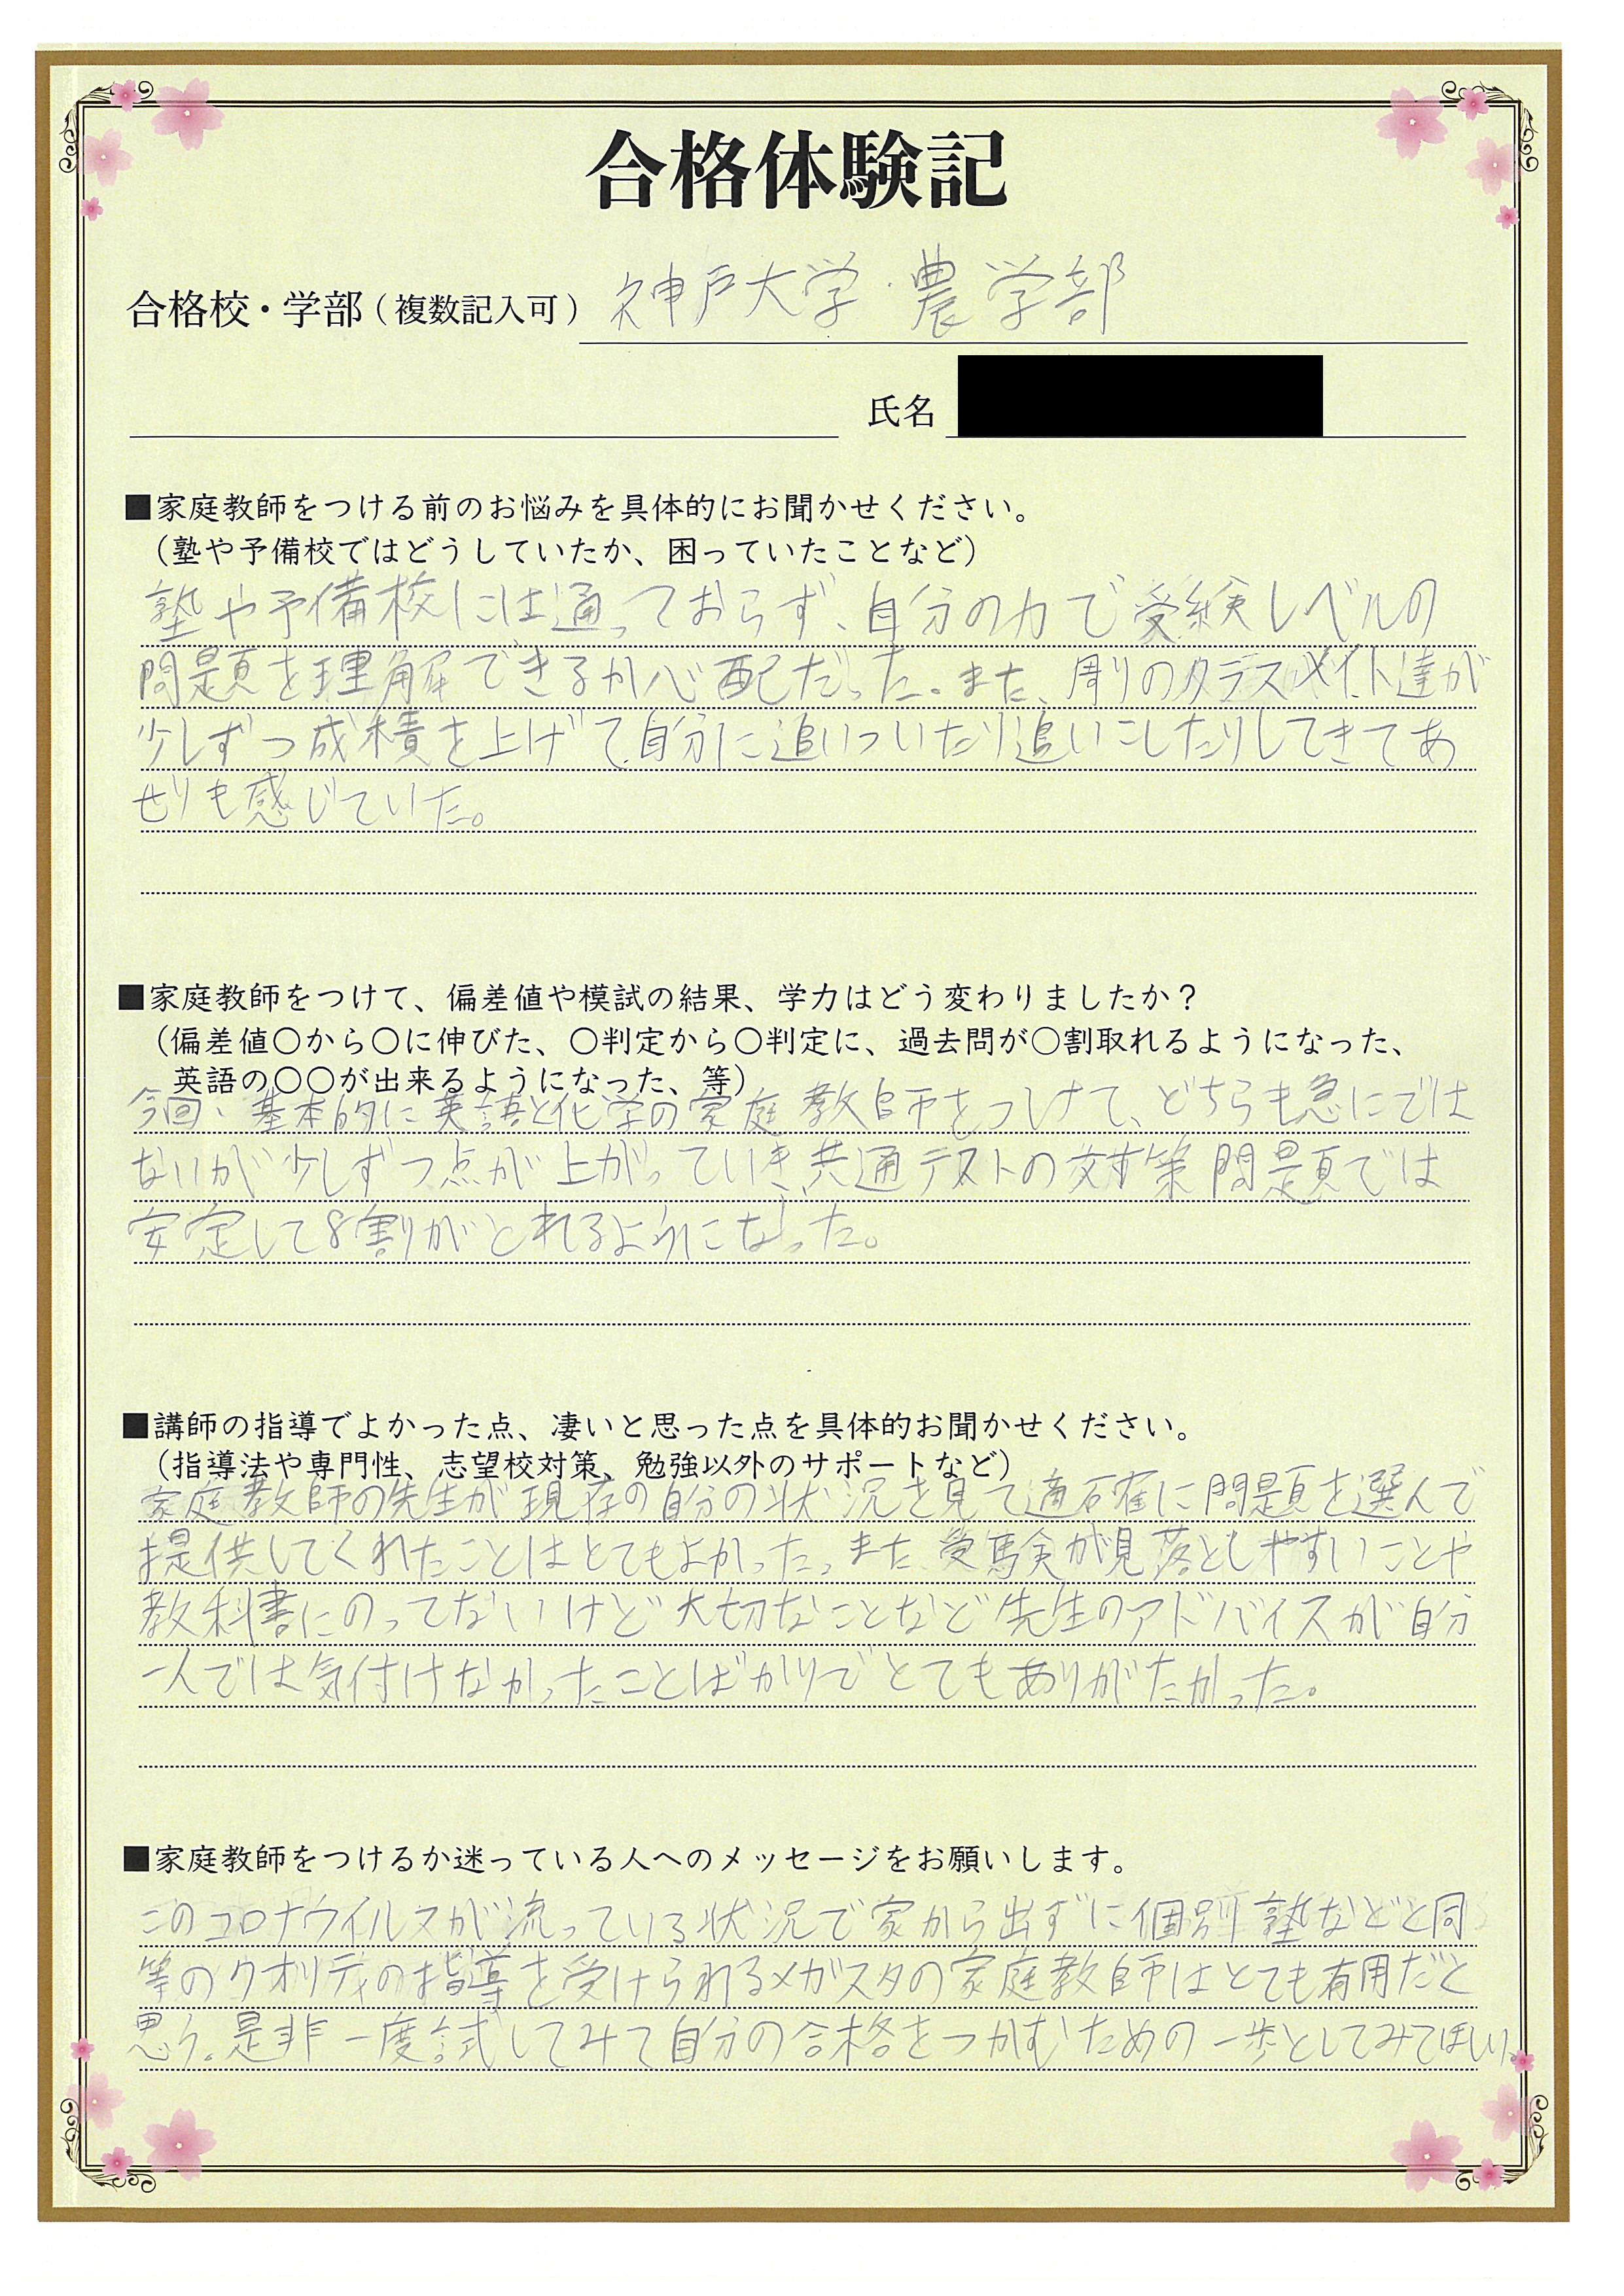 合格体験記
合格校・学部(複数記入可) 神戸大学・農学部
氏名
■家庭教師をつける前のお悩みを具体的にお聞かせください。
(塾や予備校ではどうしていたか、困っていたことなど)
塾や予備校には通っておらず、自分の力で受験レベルの
問題を理解できるか心配だった。また、周りのクラスメイト達が
少しずつ成積を上げて、自分に追いついたり追いこしたりしてきてあ
せりも感じていた。
■家庭教師をつけて、偏差値や模試の結果、学力はどう変わりましたか?
(偏差値〇から〇に伸びた、〇判定から〇判定に、過去問が〇割取れるようになった、
英語の〇〇が出来るようになった、等)
今回、基本的に英語と化学の家庭教師をつけて、どちらも急にでは
ないが少しずつ点が上がっていき、共通テストの対策問題では
安定して8割がとれるようになった。
■講師の指導でよかった点、凄いと思った点を具体的お聞かせください。
(指導法や専門性、志望校対策、勉強以外のサポートなど)
家庭教師の先生が現存の自分の状況を見て適確に問題を選んで
提供してくれたことはとてもよかった。また、受験実が見落としやすいことや
教科書にのってないけど大切なことなど先生のアドバイスが自分
一人では気付けなかったことばかりでとてもありがたかった。
■家庭教師をつけるか迷っている人へのメッセージをお願いします。
このコロナウイルスが流っている状況で家から出ずに個別塾などと同
等のクオリティの指導を受けられるメガスタの家庭教師はとても有用だと
思う。是非一度試してみて自分の合格をつかむための一歩としてみてほしい。